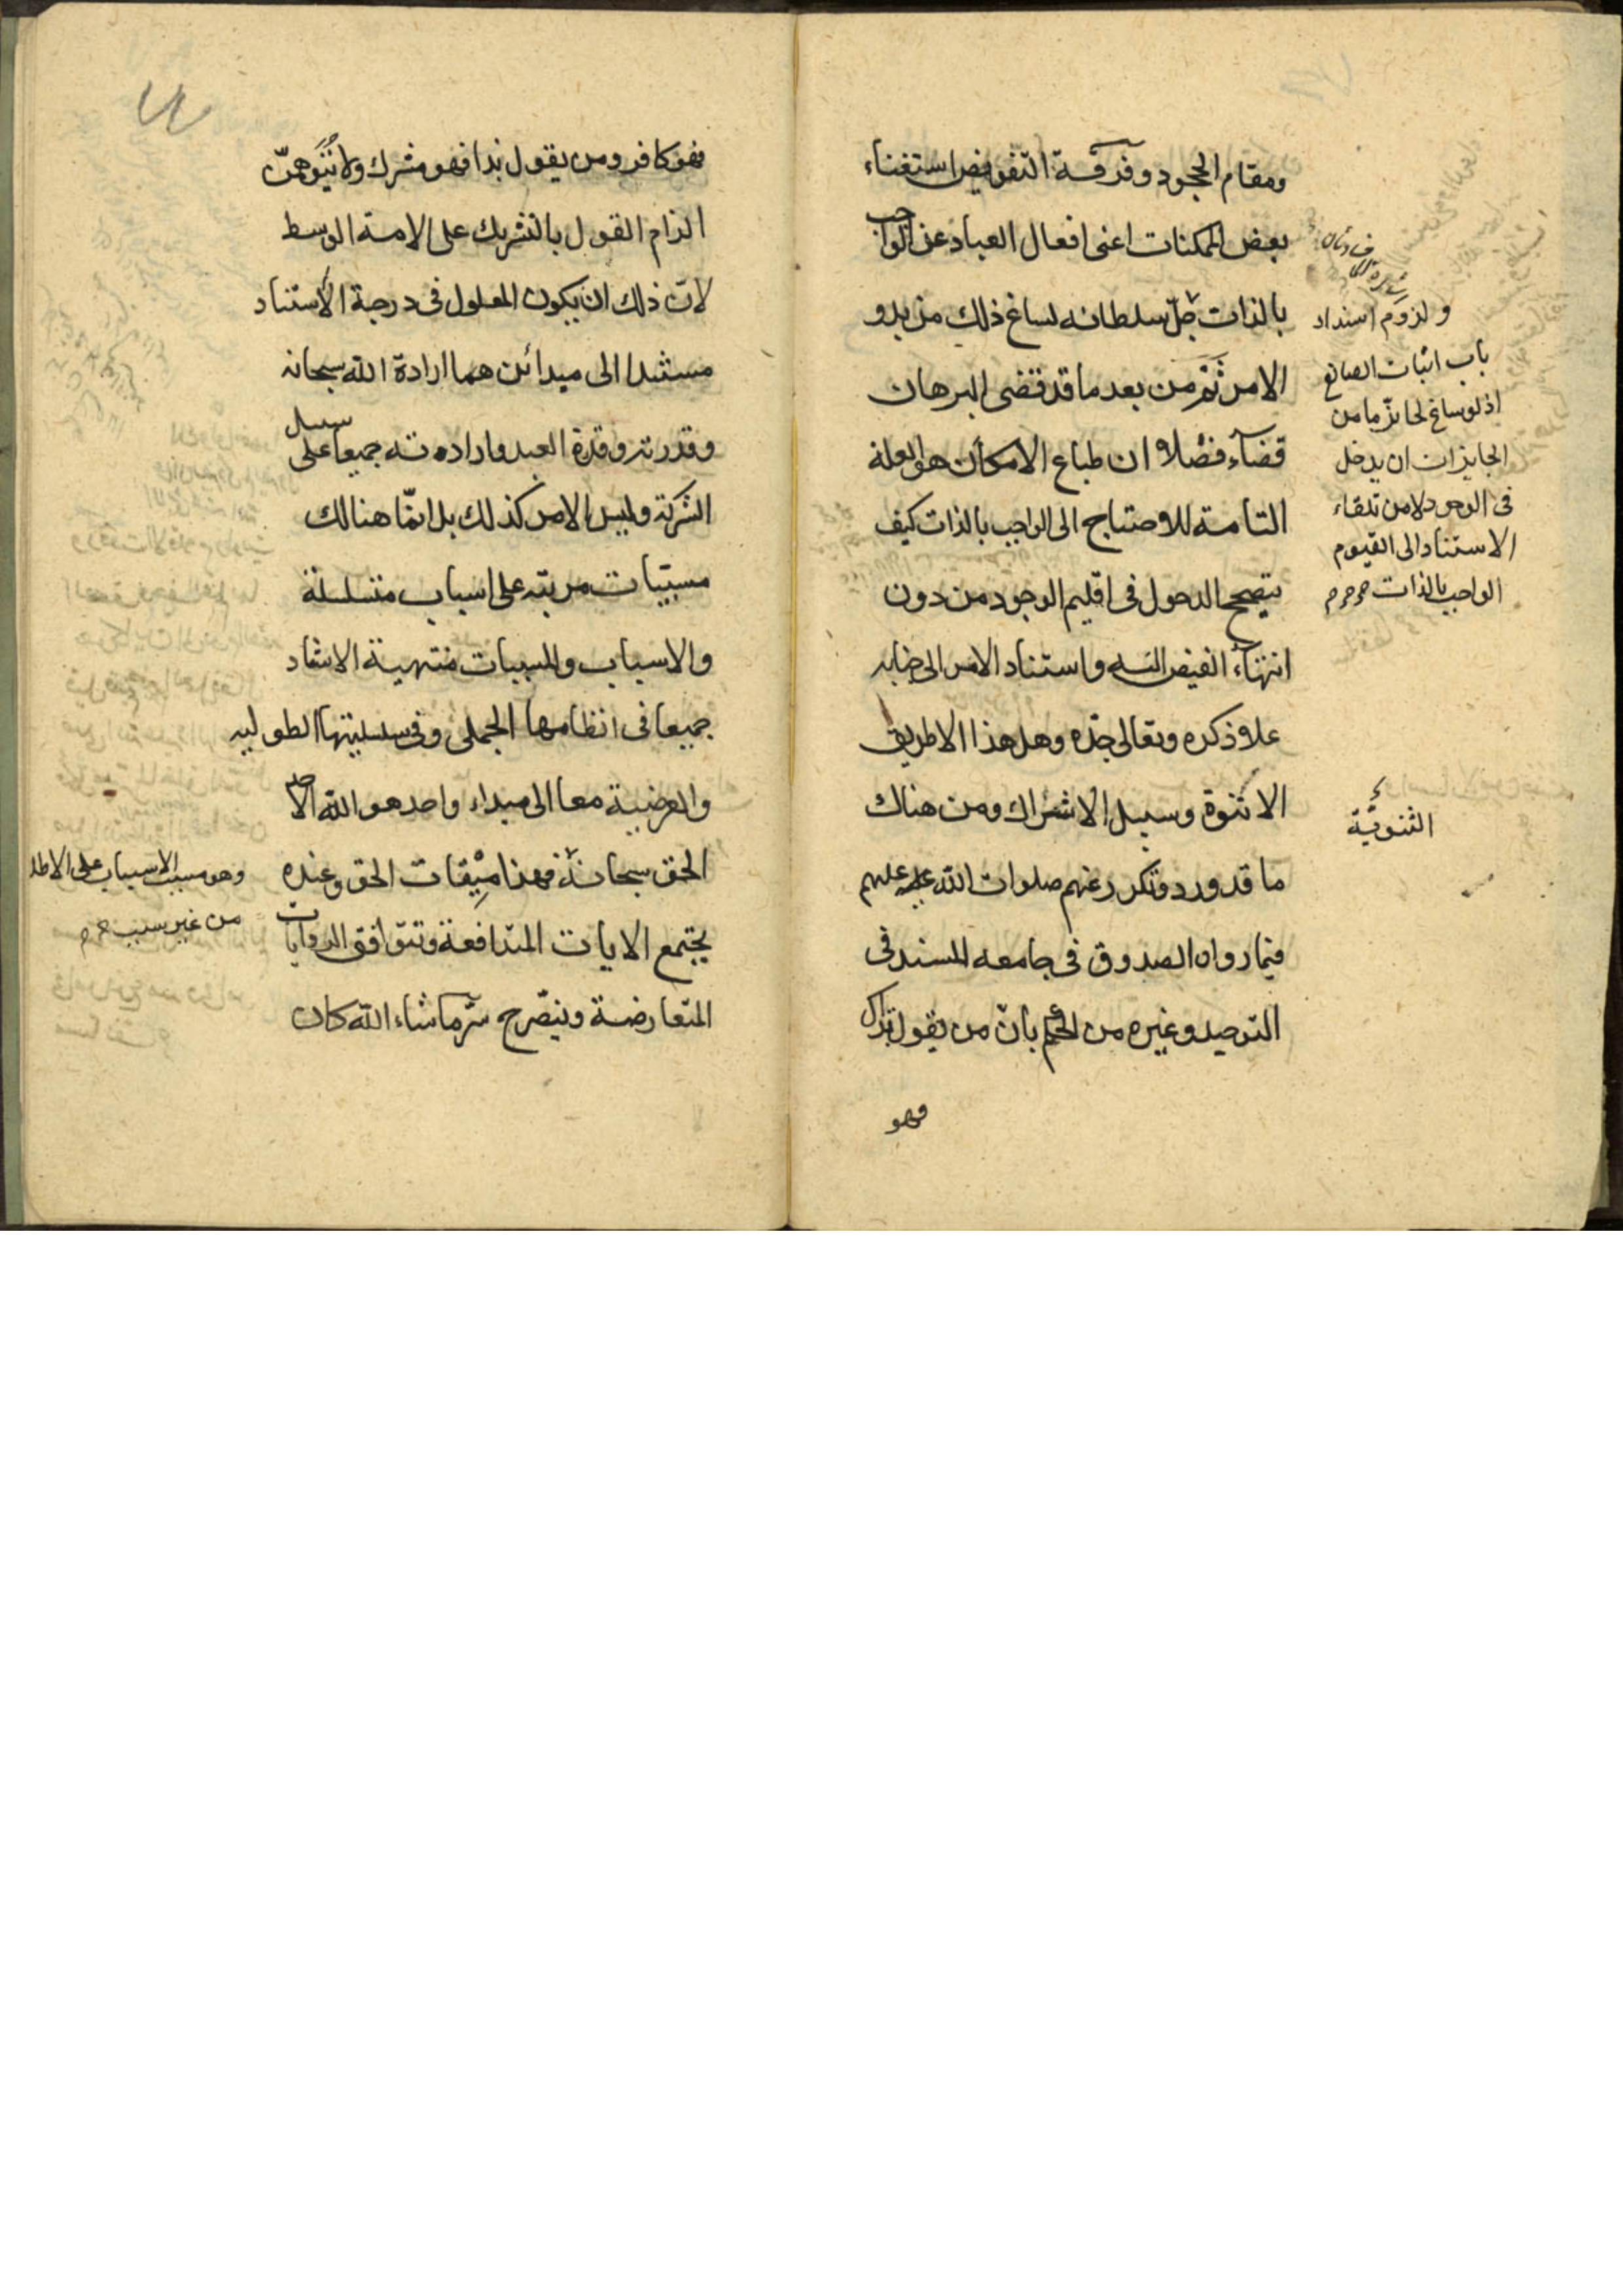 ومقام الجحود وفرقة التفويض استغناء
بعض الممكنات اعنى افعال العباد عن الواجب
بالذات جل سلطانه لساغ ذلك من بدو
الامر ثم من بعد ما قد قضى البرهان
قضآء فصلا ان طباع الامكان هو العلة
التامة للاحتياج الى الواجب بالذات كيف
يتصحح الدخول فى اقليم الوجود من دون
انتهاء الفيض اليه واستناد الامر الى جنابه
علا ذكره وتعالى جده وهل هذا الا طريق
الاثنوة وسبيل الاشراك ومن هناك
ما قد ورد وتكرر عنهم صلوات الله عليهم
فيما رواه الصدوق فى جامعه المسند فى
التوحيد وغيره من بان من يقول بذاك
فهو
ولزوم انسداد
باب اثبات الصانع
اذ لو ساغ لجائز ما من
الجايزات ان يدخل
فى الوجود لا من تلقاء
الاستناد الى القيوم
الواجب بالذات
الثنوية
فهو كافر ومن يقول بذا فهو مشرك ولا تتوهمن
الزام القول بالتشريك على الامة الوسط
لان ذلك ان يكون المعلول فى درجة الاستناد
مستندا الى مبدائن هما ارادة الله سبحانه
وقدرته وقدرة العبد وارادته جميعا على سبيل
الشركة وليس الامر كذلك بل انما هنالك
مسببات مرتبه على اسباب متسلسلة
والاسباب والمسببات منتهية الاستناد
جميعا فى انظامها الجملى وفى سلسلتيها الطوليه
والعرضية معا الى مبداء واحد هو الله الاحد
الحق سبحانه فهذا ميقات الحق وعنده
يجتمع الايات المتدافعة وتتوافق الروايات
المتعارضة وينصرح سر ماشاء الله كان
وهو مسبب الاسباب على الاطلا
من غير سبب